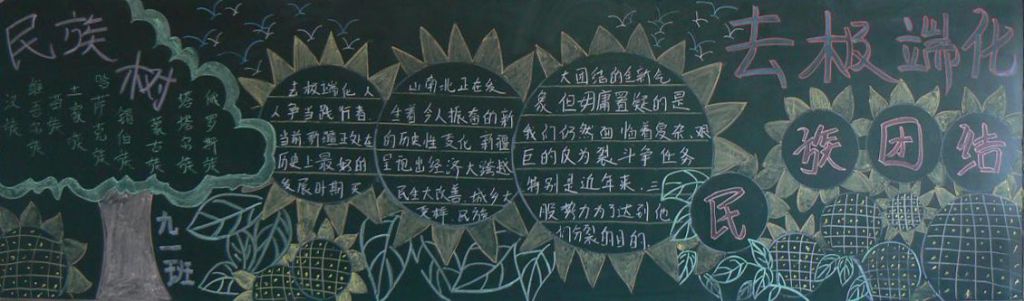 民族
树
汉族
维吾尔族
当族
哈萨克族
土家族
锡伯族
蒙古族
塔塔尔族
俄罗斯族
九一班
去极端化人
人争当践行者.
当前新疆正处在
历史上最好的
发展时期天
山南北正在发
生着令人振奋的新
的历史性变化新疆
呈现出经济大跨越
民生大改善.城乡大
变样.民族
大团结的全新气
象.但毋庸置疑的是
我们仍然面临着复杂.艰
巨的反分裂斗争任务
特别是近年来.三
股势力为了达到他
们分裂的目的.
去极端化
民族团结